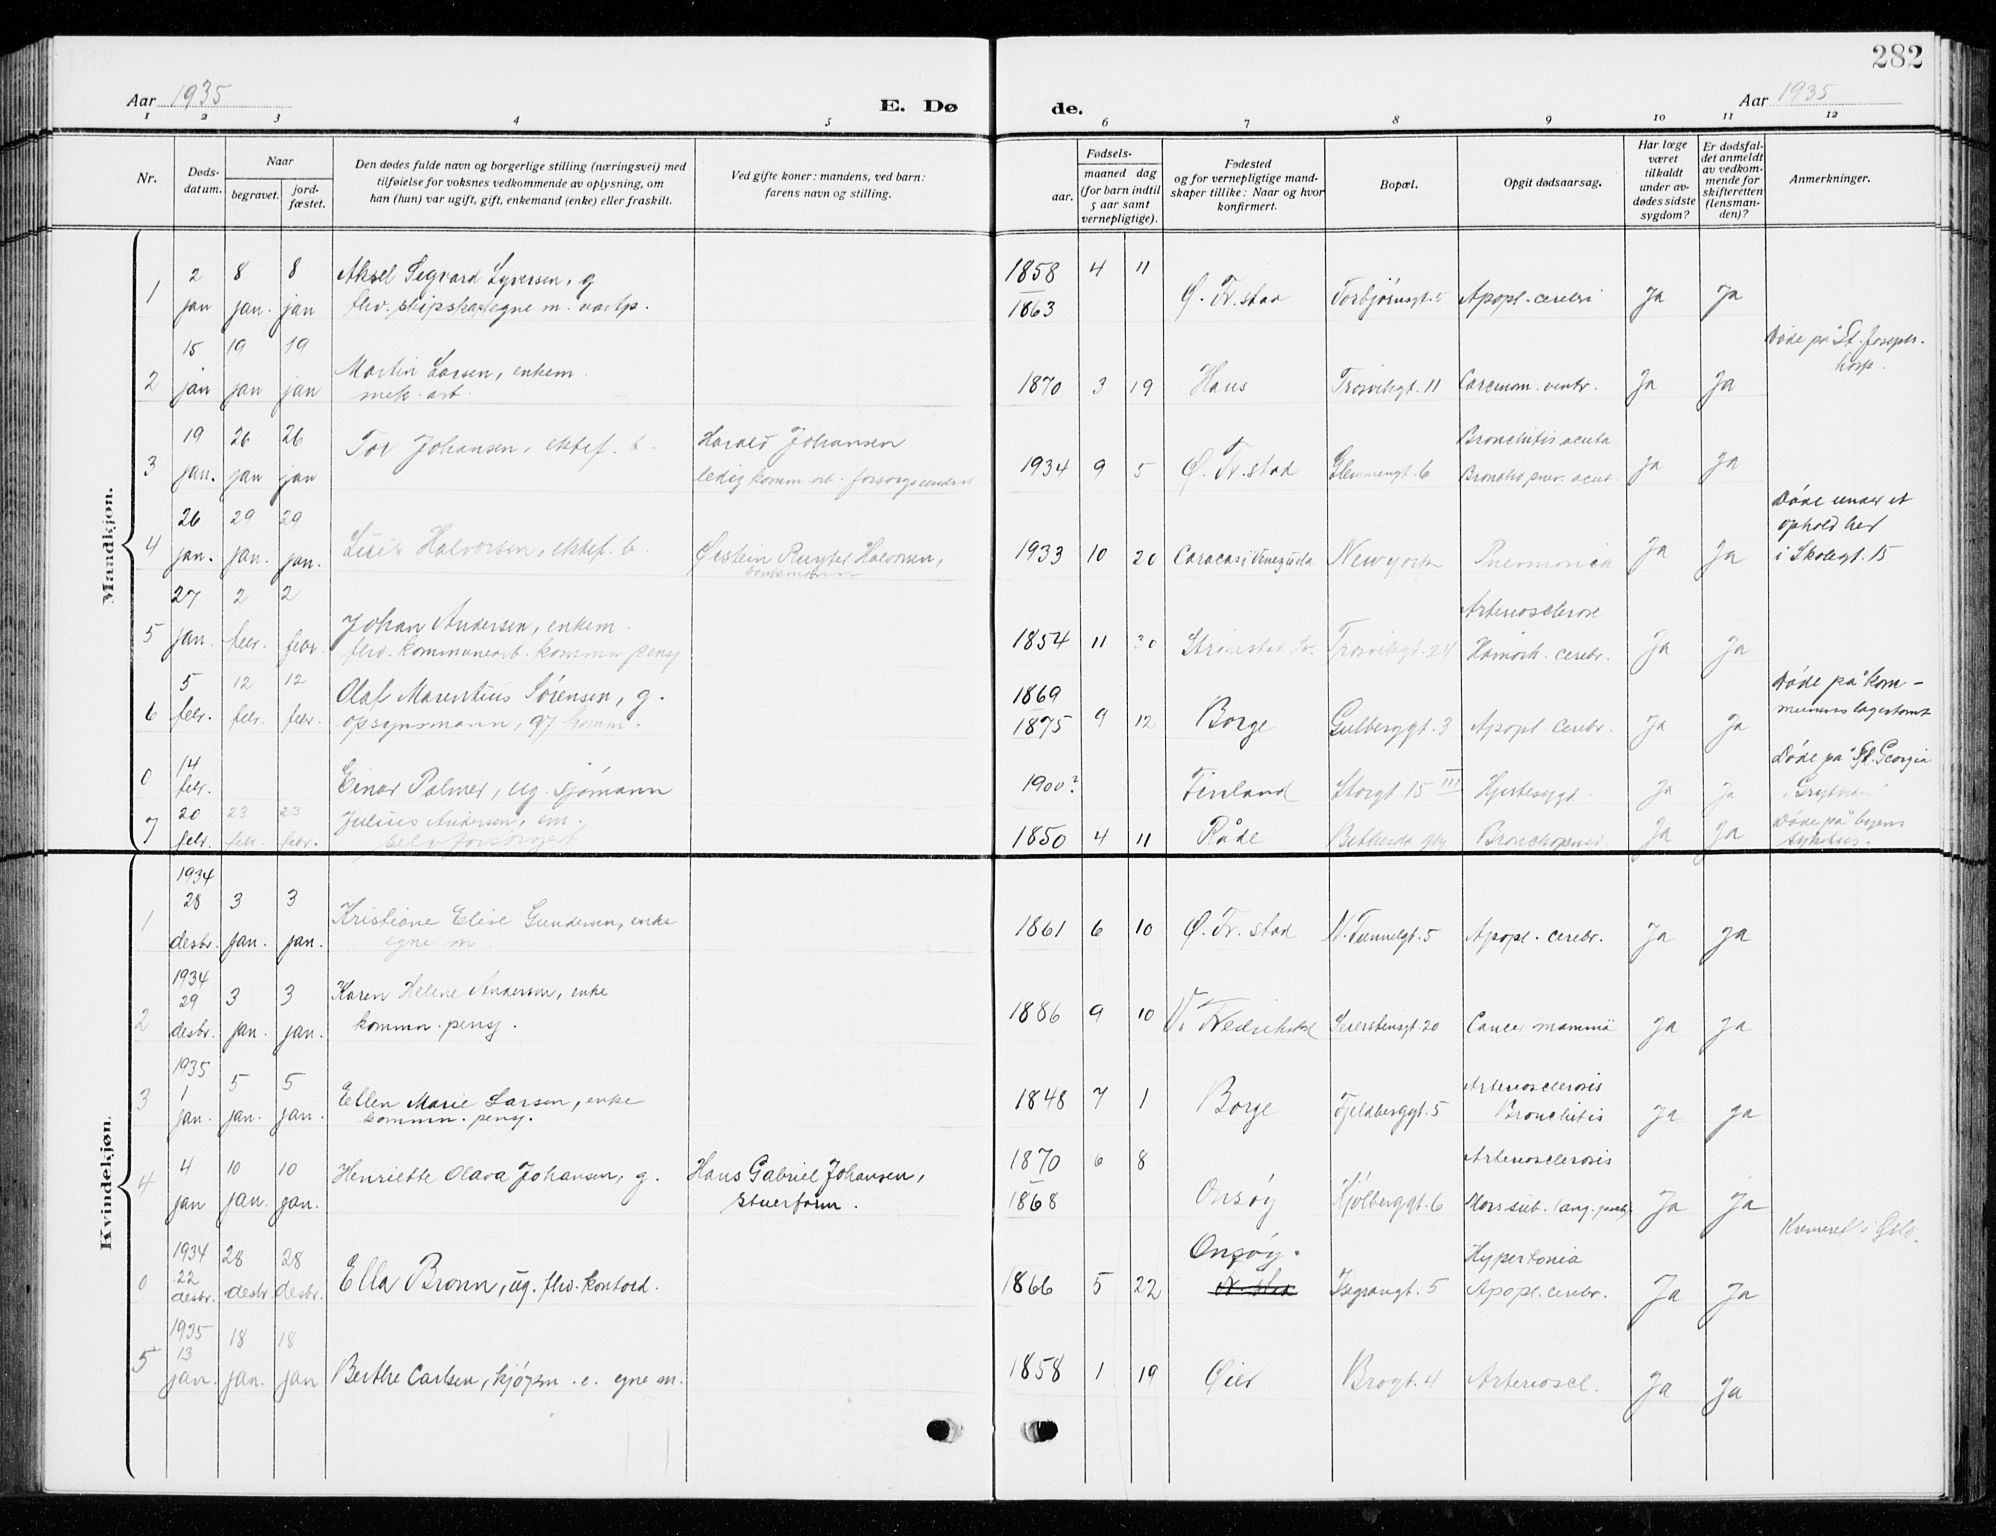 282
Aar 1935
E. Dø de.
Aar 1935
1 2 3 4 5 6 7 8 9 10 11 12
Nr.
Døds-datum.
Naar
begravet.
jord-fæstet.
Den dødes fulde navn og borgerlige stilling (næringsvei) med
tilføielse for voksnes vedkommende av oplysning, om
han (hun) var ugift, gift, enkemand (enke) eller fraskilt.
Ved gifte koner: mandens, ved barn:
farens navn og stilling.
Fødsels-
aar.
maaned dag
(for barn indtil
5 aar samt
vernepligtige).
Fødested
og for vernepligtige mand-
skaper tillike: Naar og hvor
konfirmert.
Bopæl.
Opgit dødsaarsag.
Har læge
været
tilkaldt
under av-
dødes sidste
sygdom?
Er dødsfal-
det anmeldt
av vedkom-
mende for
skifteretten
(lensman-
den)?
Anmerkninger.
Mandkjøn.
1 2 jan 8 jan. 8 jan Aksel Segvard Syversen, g
fhv. egne m.
1858 1863 4 11 Ø. Fr.stad Torbjørnsgt. 5 Apopl. cerebri Ja Ja
2 15 jan 19 jan 19 jan Martin Larsen, enkem.
mek. arb.
1870 3 19 Hans Trosvikgt. 11 Carcinom. ventr. Ja Ja Døde på St. Josephs.
hosp.
3 19 jan. 26 jan 26 jan Tor Johansen, ektef. b. Harald Johansen
ledig komm. arb.
1934 9 5 Ø. Fr.stad Glemmengt. 6 Bronchitis acuta
Ja Ja
4 26 jan. 29 jan. 29 jan. Halvorsen, ektef. b. Øistein Halvorsen,
1933 10 20 Caracas i Venezuela Newyork Pneumonia Ja Ja Døde under et
ophold her
i Skolegt. 15
5 27 jan. 2 febr. 2 febr. Johan Andersen, enkem.
fhv. kommunearb. kommun. pensj.
1854 11 30 Strømstad Sv. Trosvikgt. 24 Arteriosclerose
Hæmorh. cerebr. Ja Ja
6 5 febr. 12 febr. 12 febr. Olaf Marentius Sørensen, g.
opsynsmann,
1869 1875 9 12 Borge Gulberggt. 3 Apopl. cerebr. Ja Ja Døde på kom-
munens lagertomt
0 14 febr. Einar Palmer, ug. sjømann
1900? Finland Storgt. 15 III Hjertesygd. Ja Ja Døde på St. Georgia
"Grytviken"
7 20 febr. 23 febr. 23 febr. Julius Andersen, em.
selvforsørget
1850 4 11 Råde Bethesda Bronchopneu. Ja Ja Døde på byens
sykehus.
Kvindekjøn.
1 1934 28 desbr. 3 jan. 3 jan. Kristiane Elise Gundersen, enke
egne m.
1861 6 10 Ø. Fr. stad N. Tunnelgt. 5 Apopl. cerebr. Ja Ja
2 1934 29 desbr. 3 jan. 3 jan. Karen Helene Andersen, enke
kommn. pensj.
1886 9 10 V. Fredrikstad Seierstensgt. 20 Cancer mammä Ja Ja
3 1935 1 jan. 5 jan. 5 jan. Ellen Marie Larsen, enke
kommun. pensj.
1848 7 1 Borge Fjeldberggt. 5 Arteriosclerosis
Bronchitis Ja Ja
4 4 jan 10 jan. 10 jan. Henriette Olava Johansen, g. Hans Gabriel Johansen,
stuerform.
1870 1868 6 8 Onsøy Kjølberggt. 6 Arteriosclerosis
Mors sub. (ang. pect.) Ja Ja
0 1934 22 desbr. 28 desbr. 28 desbr. Ella Bronn, ug. fhv. kontord.
1866 5 22 Onsøy.
Fr. stad Isegrangt. 5 Hypertonia
Apopl. cerebr. Ja Ja Kremeret i Oslo.
5 1935 13 jan. 18 jan. 18 jan Berthe Carlsen, kjøpm. e. egne m.
1858 1 19 Øier Brogt. 4 Arterioscl. Ja Ja